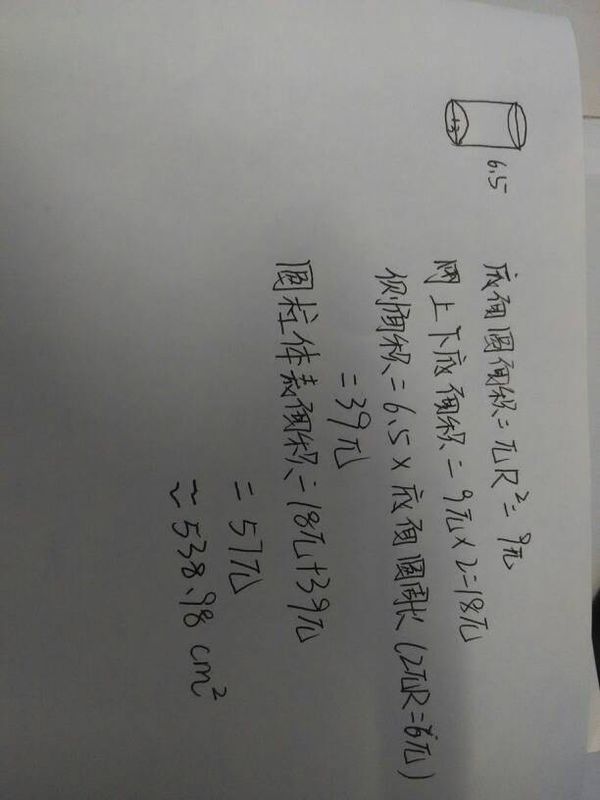 6.5
底面圆面积=πR²=9π
两上下底面积=9π×2=18π
侧面积=6.5×底面圆周长(2πR=6π)
=39π
圆柱体表面积=18π+39π
=57π
≈538.98 cm²